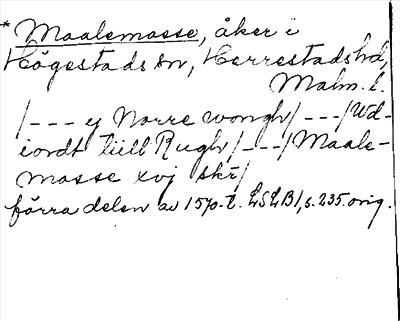 * Maalemasse, åker i
Högestads sn, Herrestads hd,
Malm. l.
/--- y Norre wongh/ ---/Wd-
iordt tiill Rugh/---/Maale-
masse xvj skr/
förra delen av 1570-t. LSLB1, s. 235. orig.